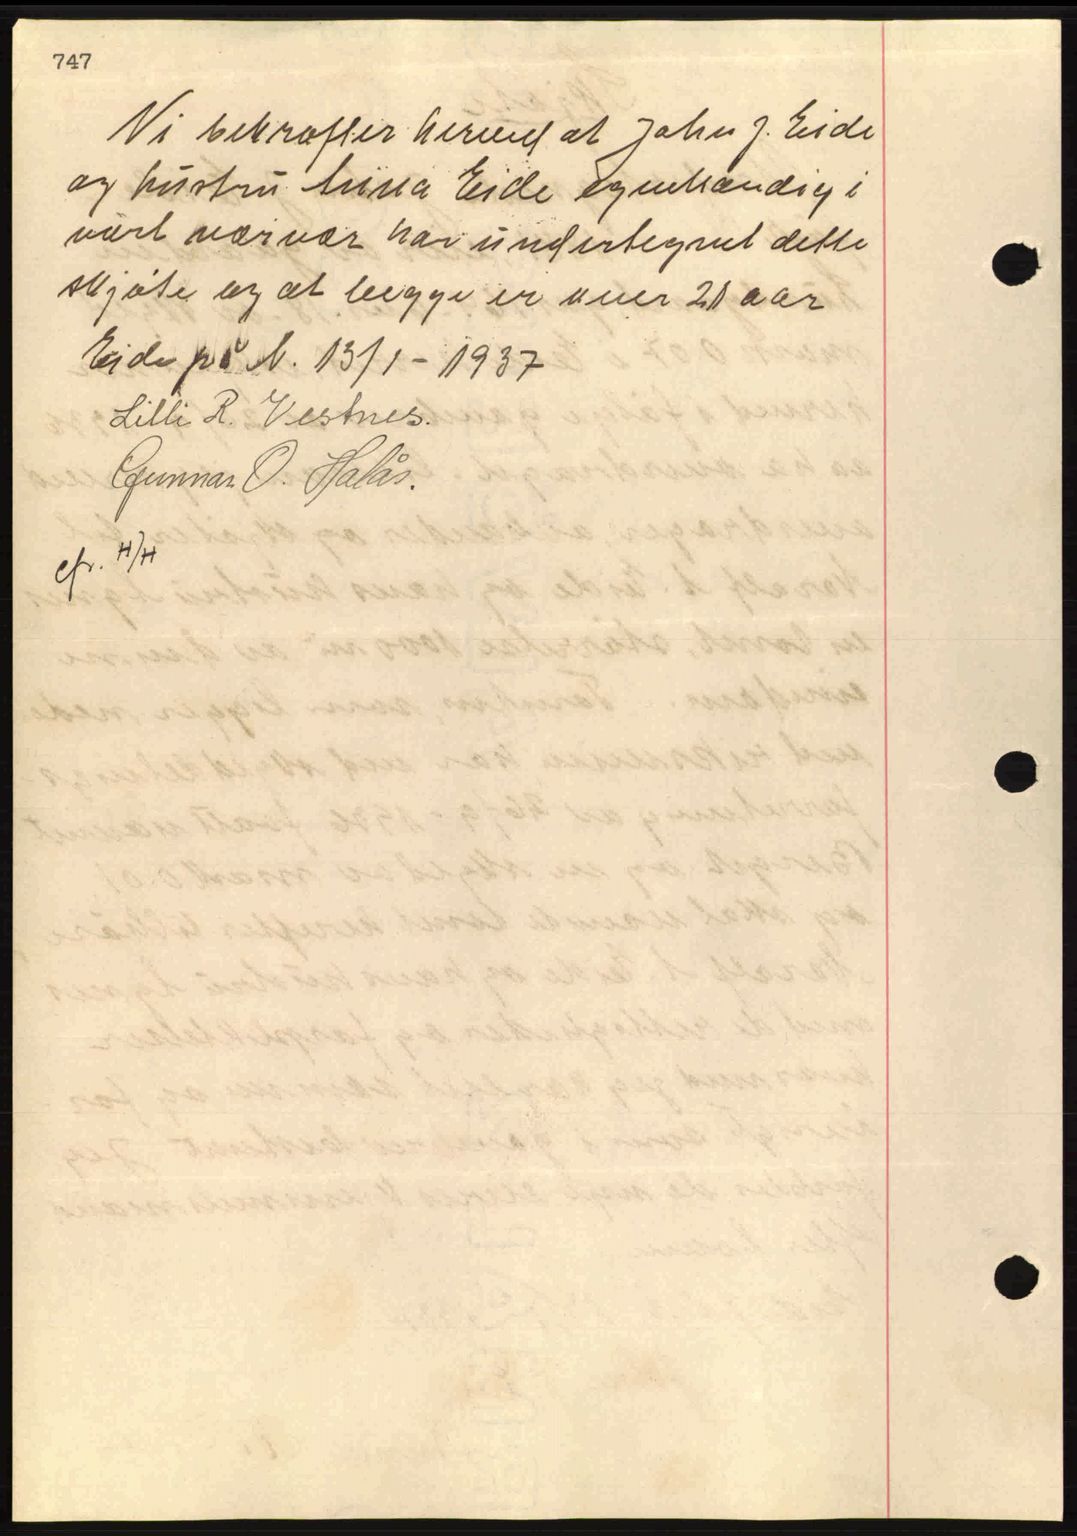 747
Vi bekræfter herved at John J. Eide
og hustru Anna Eide egenhændig i
vårt nærvær har undertegnet dette
skjøte og at begge er over 21 aar
Eide på N. 13/1 - 1937
Lilli R. Vestnes.
Gunnar O. Halås.
cfr. H/H